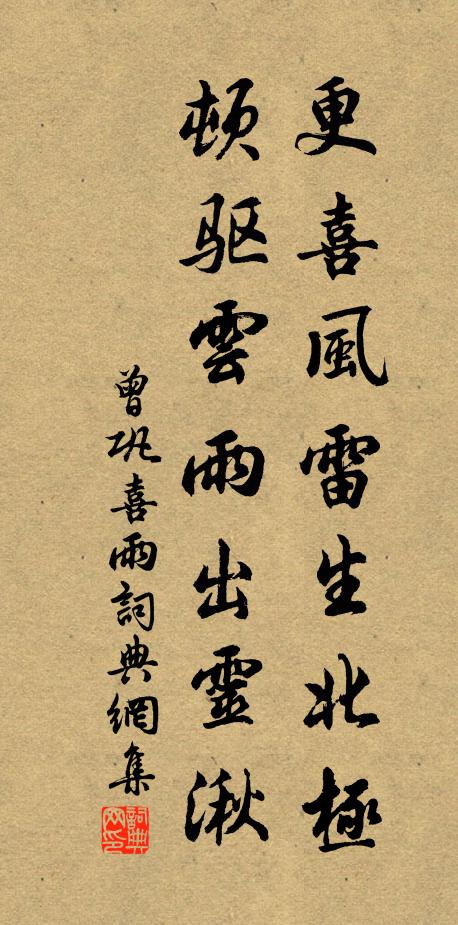 更喜風雷生北極
頓驱雲雨出靈湫
曾巩喜雨詞典網集
詞典網印